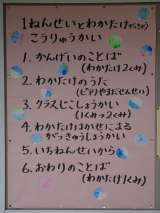 1ねんせいとわかたけ
こうりゅうかい
1. かんげいのことば
(わかたけ2くみ)
2. わかたけのうた
3. クラスしょうかい
4. わかたけはかせによる
がっきゅうしょうかい
5. いちねんせいから
6. おわりのことば
(わかたけ1くみ)